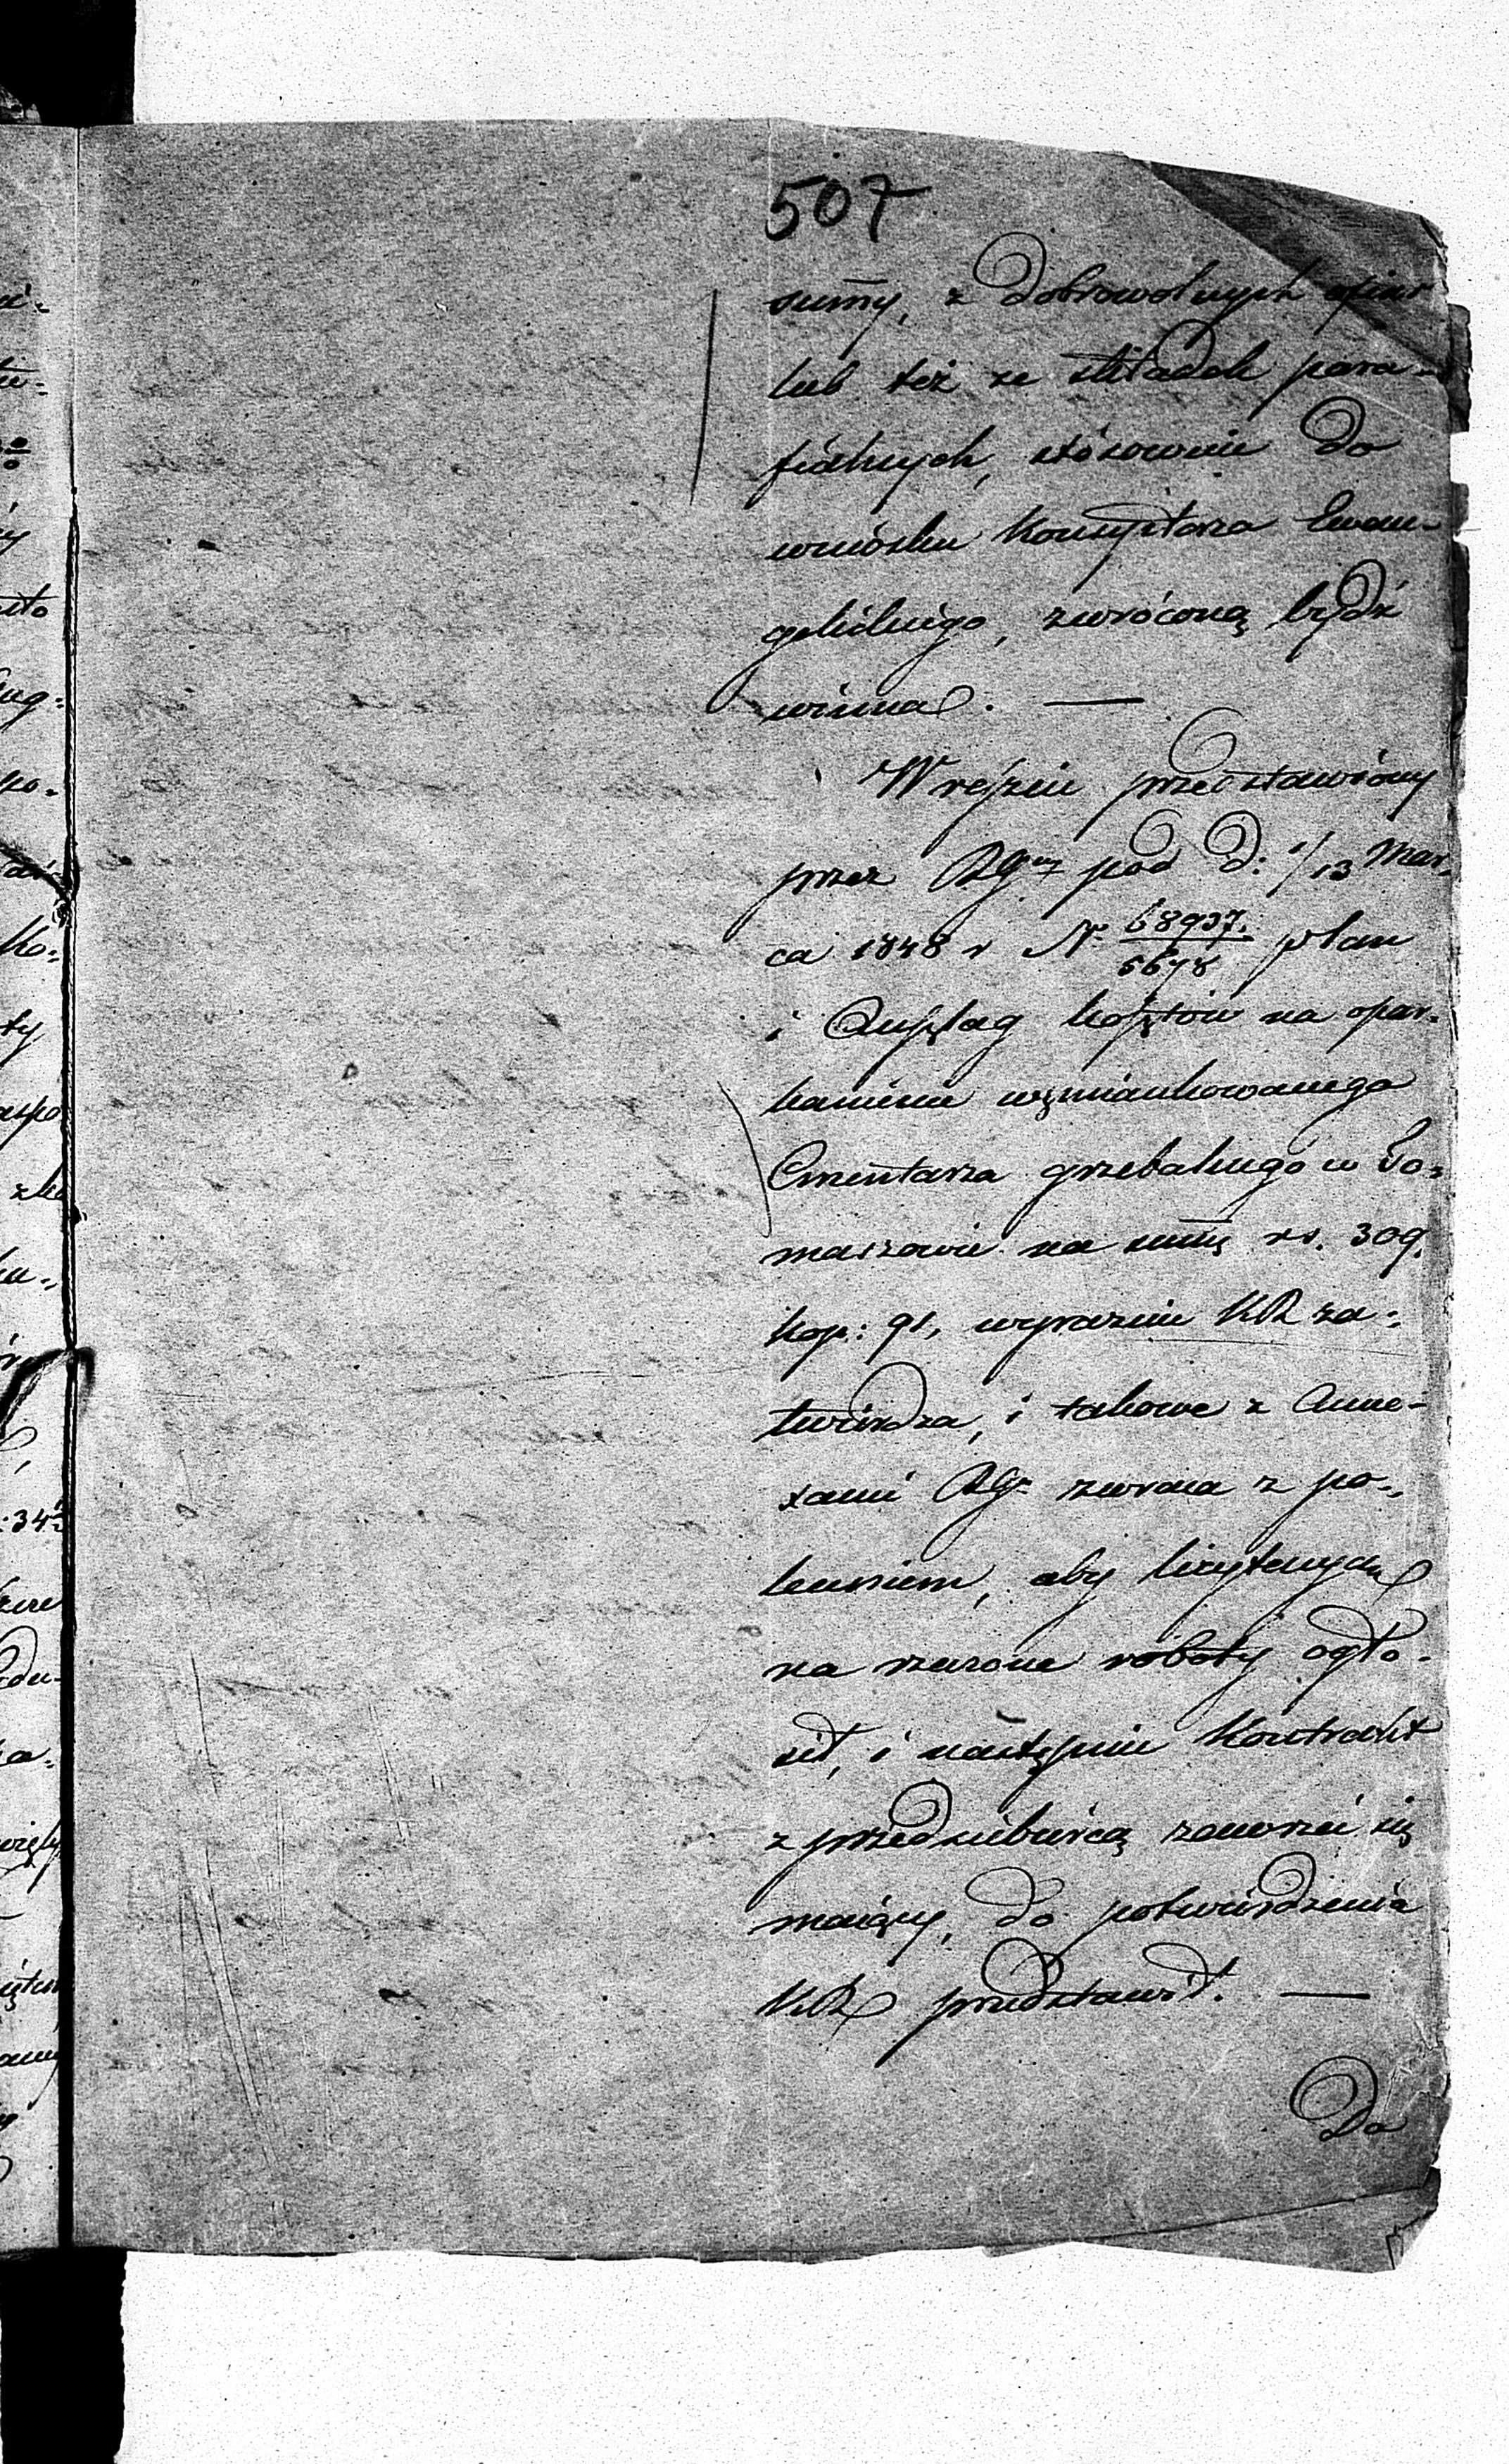 507
sum̃y, z dobrowolnych ofiar
lub też ze składek para-
fialnych, stósownie do
wniósku Konsystorza Ewan-
gielickiego, zwróconą bydź
winna. —
W reszcie przedstawiony
przez RGny pod d. 1/13 Mar-
ca 1848 r N. 68937/5678 plan
i Anszlag kosztów na opar-
kanienie wzmiankowanego
Cmentarza grzebalnego w To-
maszowie na sum̃ę rs. 309.
kop: 91, wyrazem KR za-
twierdza, i takowe z Anne-
xami RGr zwraca z po-
leceniem, aby licytacyą
na rzeczone roboty ogło-
sił, i nastepnie Kontrakt
z przedsiębiercą zawrzeć się
maiący, do potwierdzenia
KR przedstawił. —
Do